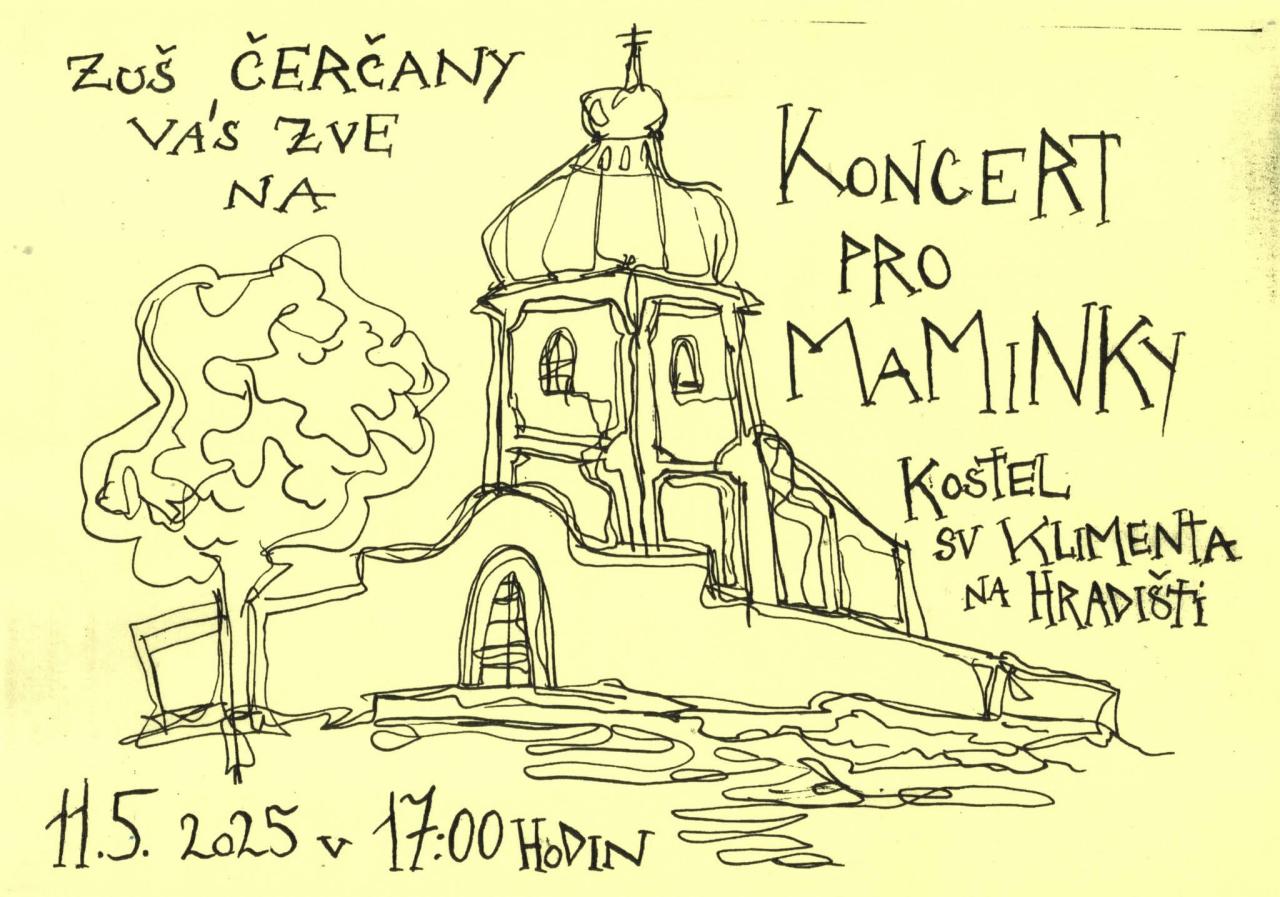 ZUŠ ČERČANY
VÁS ZVE
NA
KONCERT
PRO
MAMINKY
KOSTEL
SV KLIMENTA
NA HRADIŠTI
11.5. 2025 v 17:00 HODIN